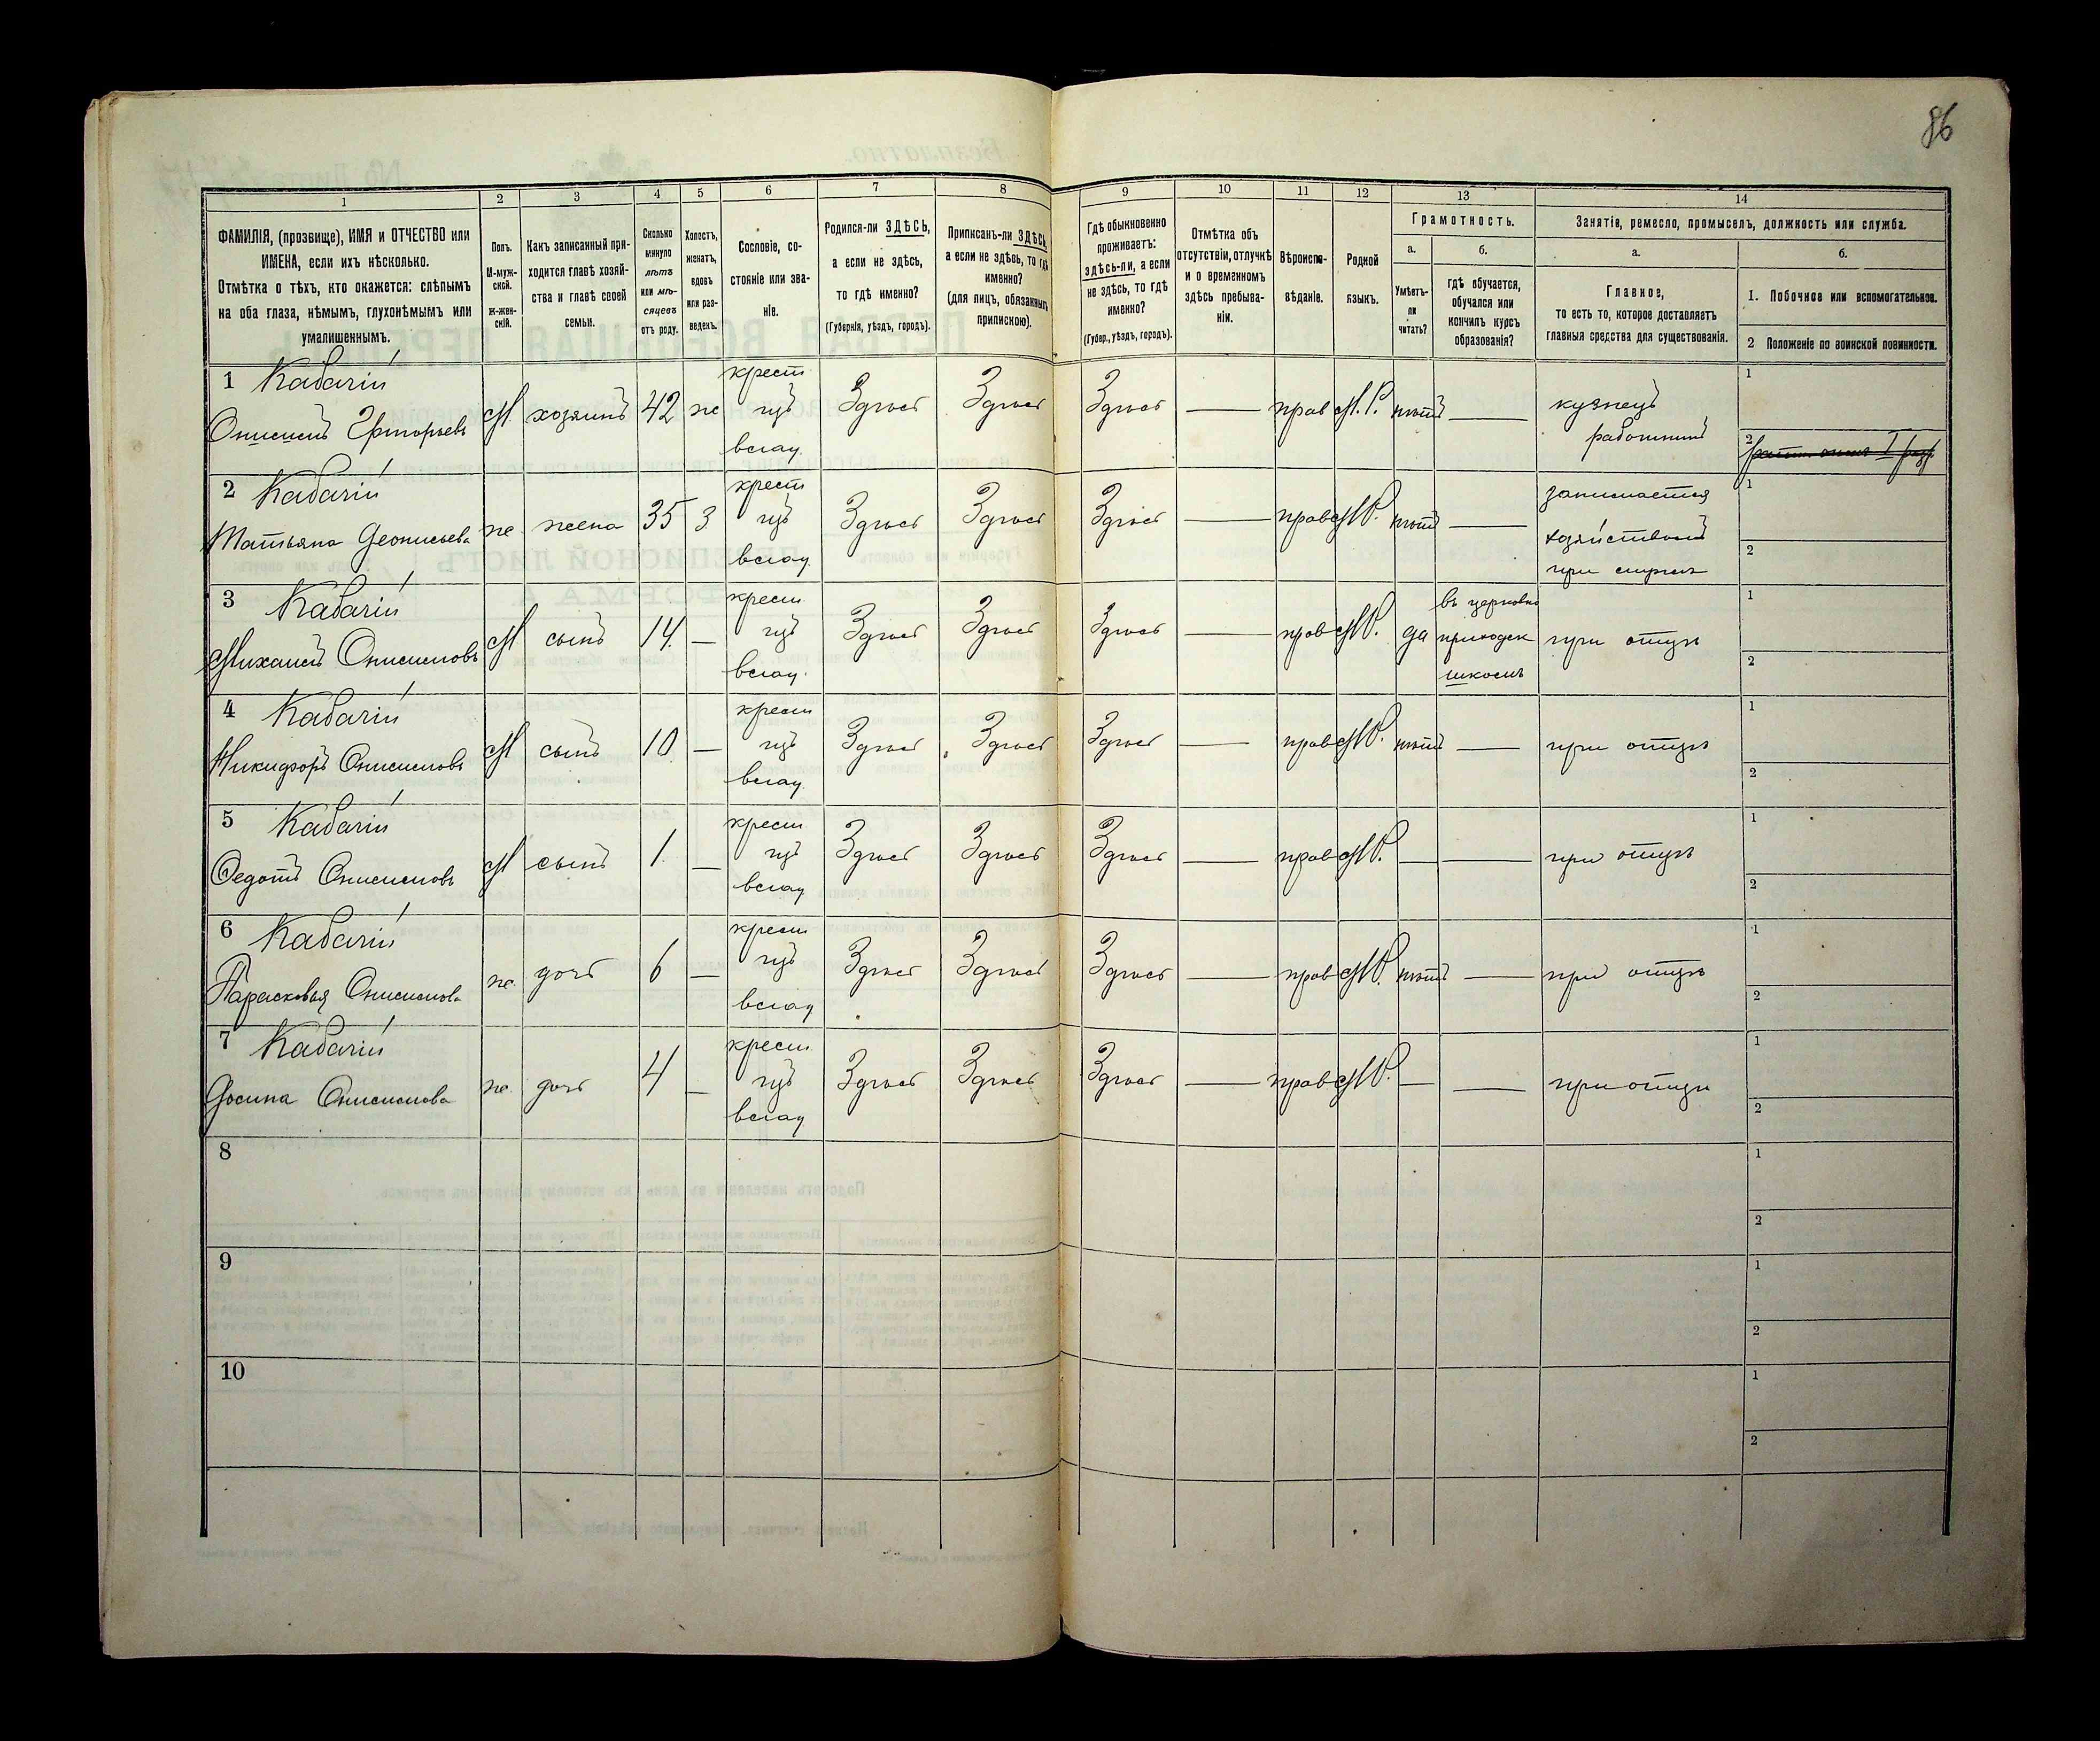 86
1 2 3 4 5 6 7 8 9 10 11 12 13 14
ФАМИЛІЯ, (прозвище), ИМЯ и ОТЧЕСТВО или
ИМЕНА, если ихъ нѣсколько.
Отмѣтка о тѣхъ, кто окажется: слѣпымъ
на оба глаза, нѣмымъ, глухонѣмымъ или
умалишеннымъ.
Полъ.
М-муж-
ской.
ж-жен-
скій.
Какъ записанный при-
ходится главѣ хозяй-
ства и главѣ своей
семьи.
Сколько
минуло
лѣтъ
или мѣ-
сяцевъ
отъ роду.
Холостъ,
женатъ,
вдовъ
или раз-
веденъ.
Сословіе, со-
стояніе или зва-
ніе.
Родился-ли ЗДѢСЬ,
а если не здѣсь,
то гдѣ именно?
(Губернія, уѣздъ, городъ).
Приписанъ-ли ЗДѢСЬ,
а если не здѣсь, то гдѣ
именно?
(для лицъ, обязанныхъ
припискою).
Гдѣ обыкновенно
проживаетъ:
здѣсь-ли, а если
не здѣсь, то гдѣ
именно?
(Губер., уѣздъ, городъ).
Отмѣтка объ
отсутствіи, отлучкѣ
и о временномъ
здѣсь пребыва-
ніи.
Вѣроиспо-
вѣданіе.
Родной
языкъ.
Грамотность.
а.
Умѣетъ-
ли
читать?
б.
гдѣ обучается,
обучался или
кончилъ курсъ
образованія?
Занятія, ремесло, промыселъ, должность или служба.
а.
Главное,
то есть то, которое доставляетъ
главныя средства для существованія.
б.
1. Побочное или вспомогательное.
2 Положеніе по воинской повинности.
1 Кабачій крест 1
Онисимъ Григорьевъ М хозяинъ 42 же изъ Здѣсь Здѣсь Здѣсь — прав М.Р. нѣтъ — кузнец
влад. работникъ 2
2 Кабачій крест занимается 1
Татьяна Деонисьева же жена 35 З изъ Здѣсь Здѣсь Здѣсь — прав М.Р. нѣтъ — хозяйствомъ
влад. при мужѣ 2
3 Кабачій крест въ церковно 1
Михаилъ Онисимовъ М сынъ 14 — изъ Здѣсь Здѣсь Здѣсь — прав М.Р. да приходск при отцѣ
влад. школѣ 2
4 Кабачій крест 1
Никифоръ Онисимовъ М сынъ 10 — изъ Здѣсь Здѣсь Здѣсь — прав М.Р. нѣтъ — при отцѣ
влад. 2
5 Кабачій крест 1
Ѳедотъ Онисимовъ М сынъ 1 — изъ Здѣсь Здѣсь Здѣсь — прав М.Р. — — при отцѣ
влад 2
6 Кабачій крест 1
Парасковья Онисимова же дочь 6 — изъ Здѣсь Здѣсь Здѣсь — прав М.Р. нѣтъ — при отцѣ
влад 2
7 Кабачій крест 1
Онисимова же дочь 4 — изъ Здѣсь Здѣсь Здѣсь — прав М.Р. — — при отцѣ
влад 2
8 1
2
9 1
2
10 1
2